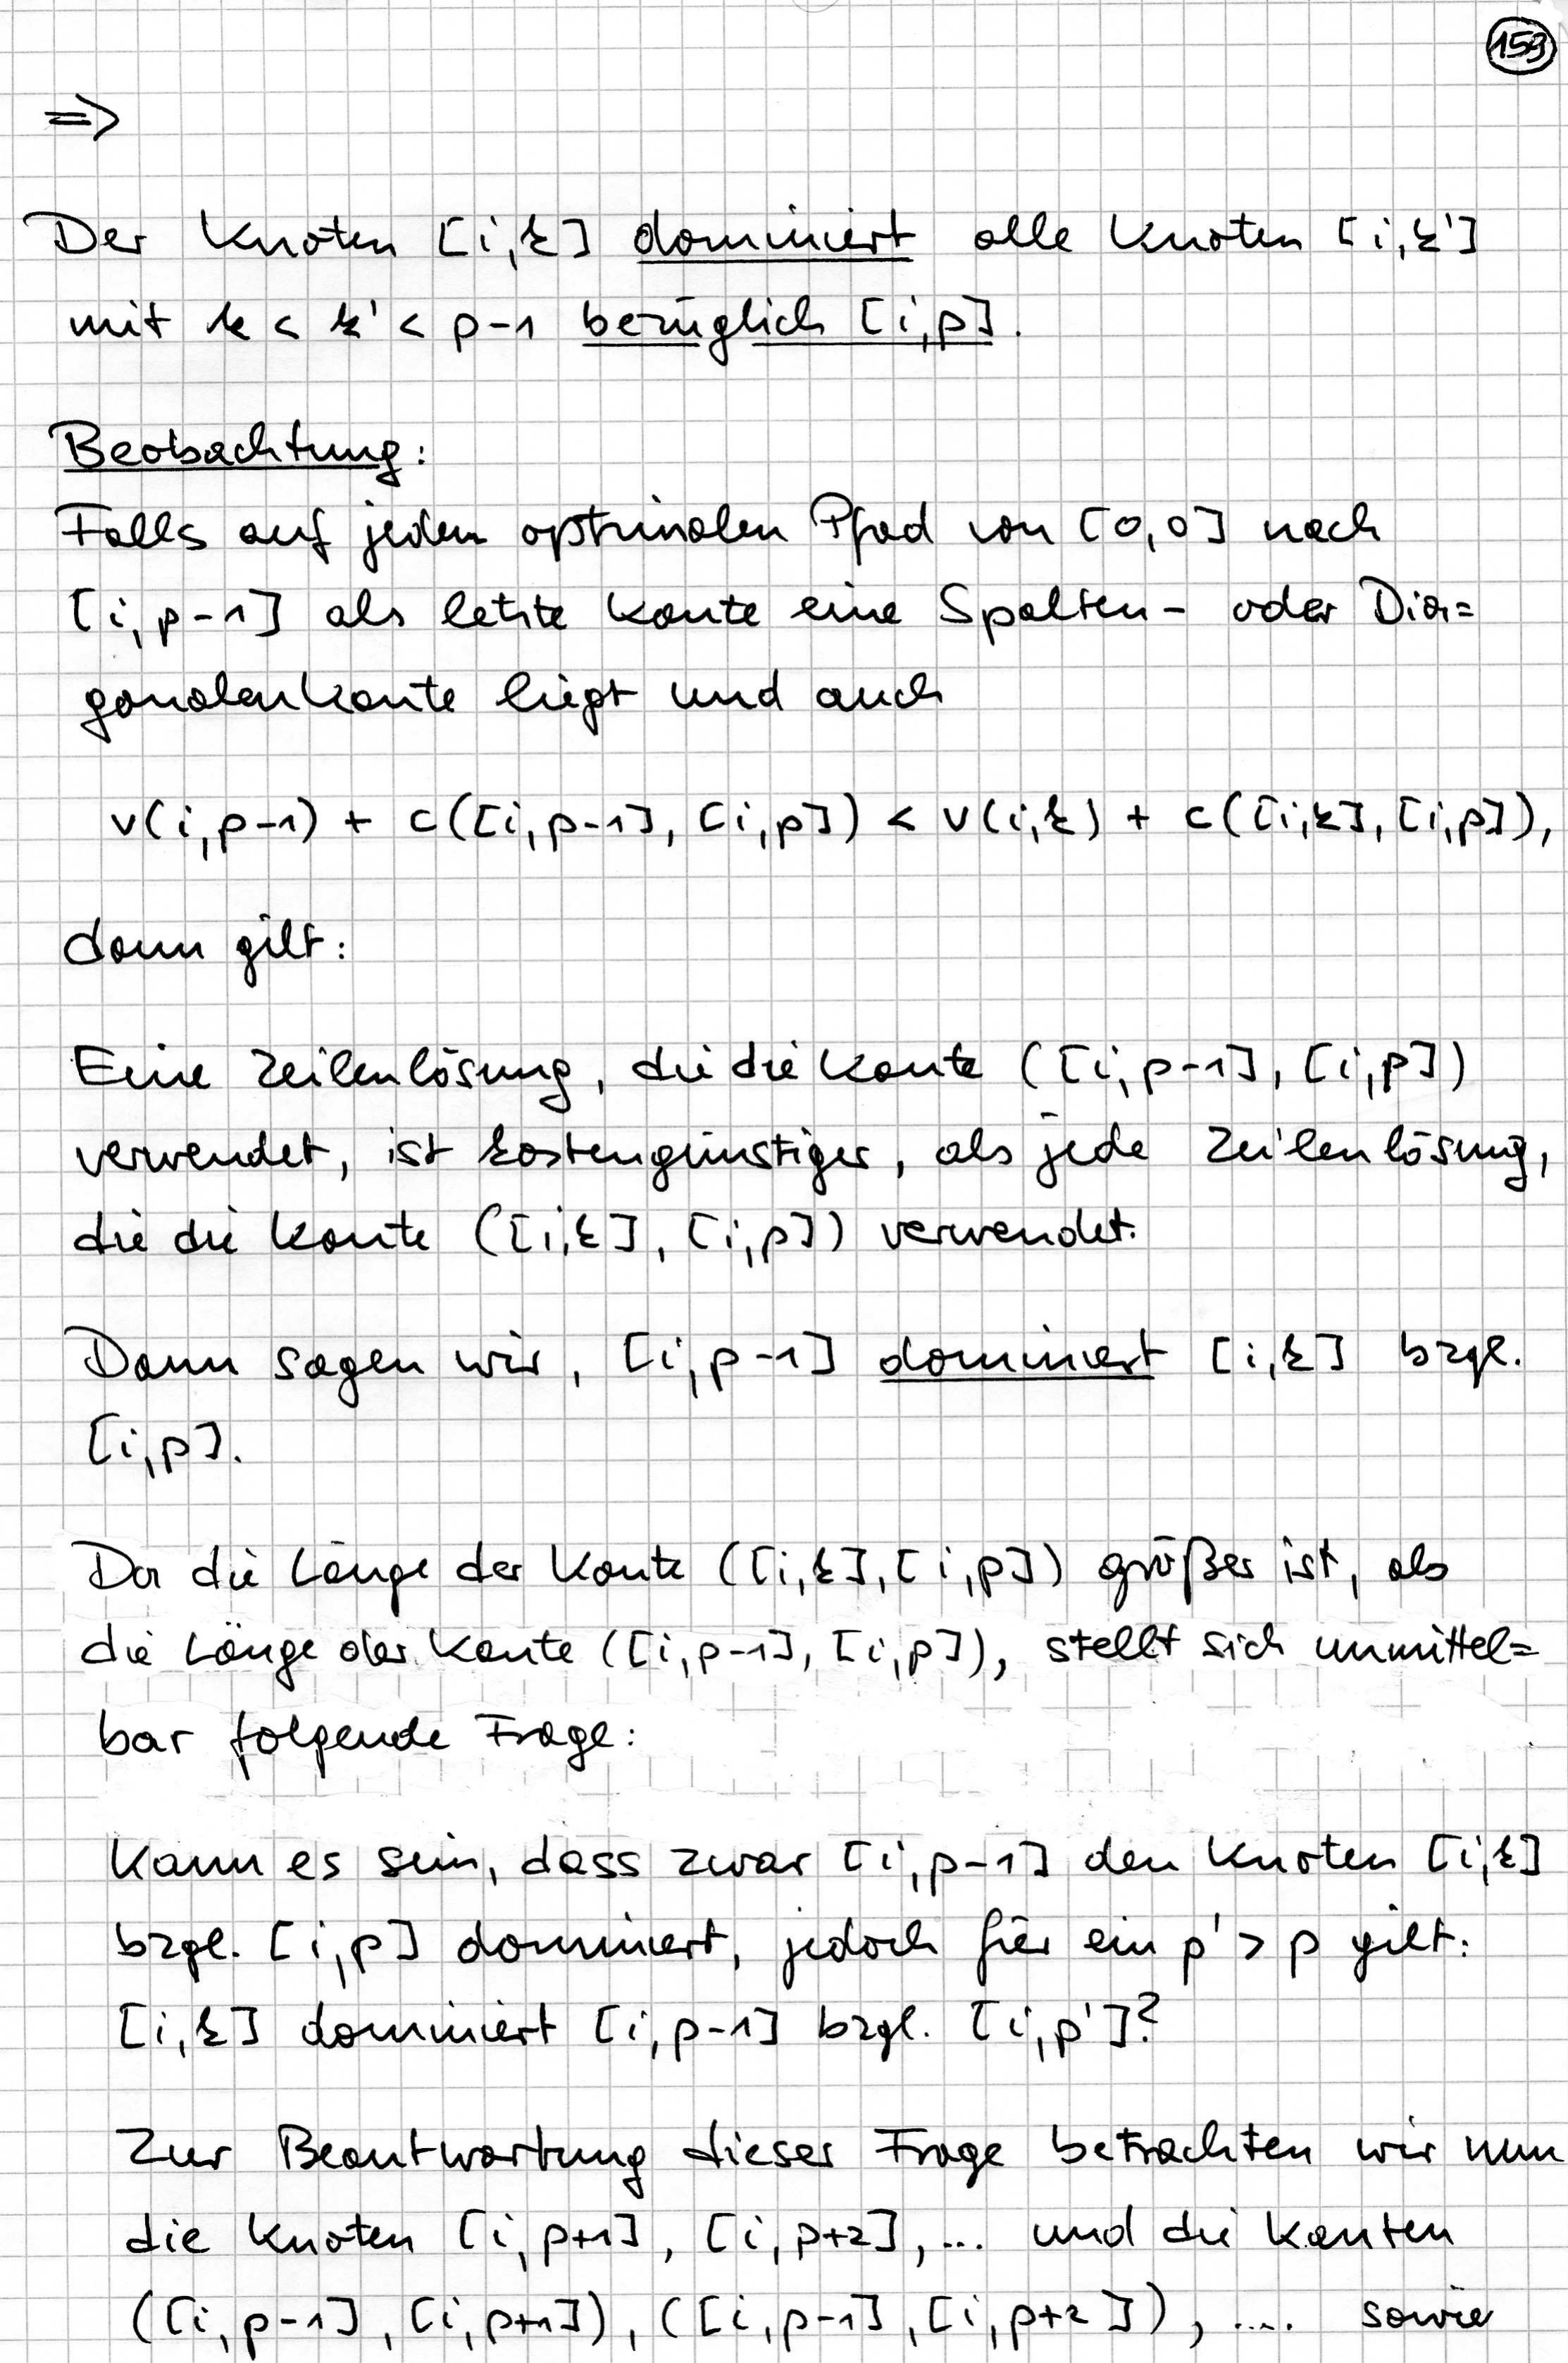 159
=>
Der Knoten [i,k] dominiert alle Knoten [i,k']
mit k < k' < p-1 bezüglich [i,p].
Beobachtung:
Falls auf jedem optimalen Pfad von [0,0] nach
[i,p-1] als letzte Kante eine Spalten- oder Dia=
gonalenkante liegt und auch
v(i,p-1) + c([i,p-1], [i,p]) < v(i,k) + c([i,k], [i,p]),
dann gilt:
Eine Zeilenlösung, die die Kante ([i,p-1], [i,p])
verwendet, ist kostengünstiger, als jede Zeilenlösung,
die die Kante ([i,k], [i,p]) verwendet.
Dann sagen wir, [i,p-1] dominiert [i,k] bzgl.
[i,p].
Da die Länge der Kante ([i,k], [i,p]) größer ist, als
die Länge der Kante ([i,p-1], [i,p]), stellt sich unmittel=
bar folgende Frage:
Kann es sein, dass zwar [i,p-1] den Knoten [i,k]
bzgl. [i,p] dominiert, jedoch für ein p' > p gilt:
[i,k] dominiert [i,p-1] bzgl. [i,p']?
Zur Beantwortung dieser Frage betrachten wir nun
die Knoten [i,p+1], [i,p+2], ... und die Kanten
([i,p-1], [i,p+1]), ([i,p-1], [i,p+2]), .... sowie